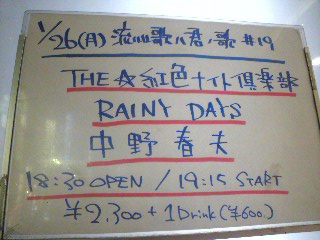 1/26(月) 流山歌ハ君ノ歌 #19
THE 紅色ナイト倶楽部
RAINY DAYS
中野春夫
18:30 OPEN / 19:15 START
¥2,300 + 1Drink(¥600)